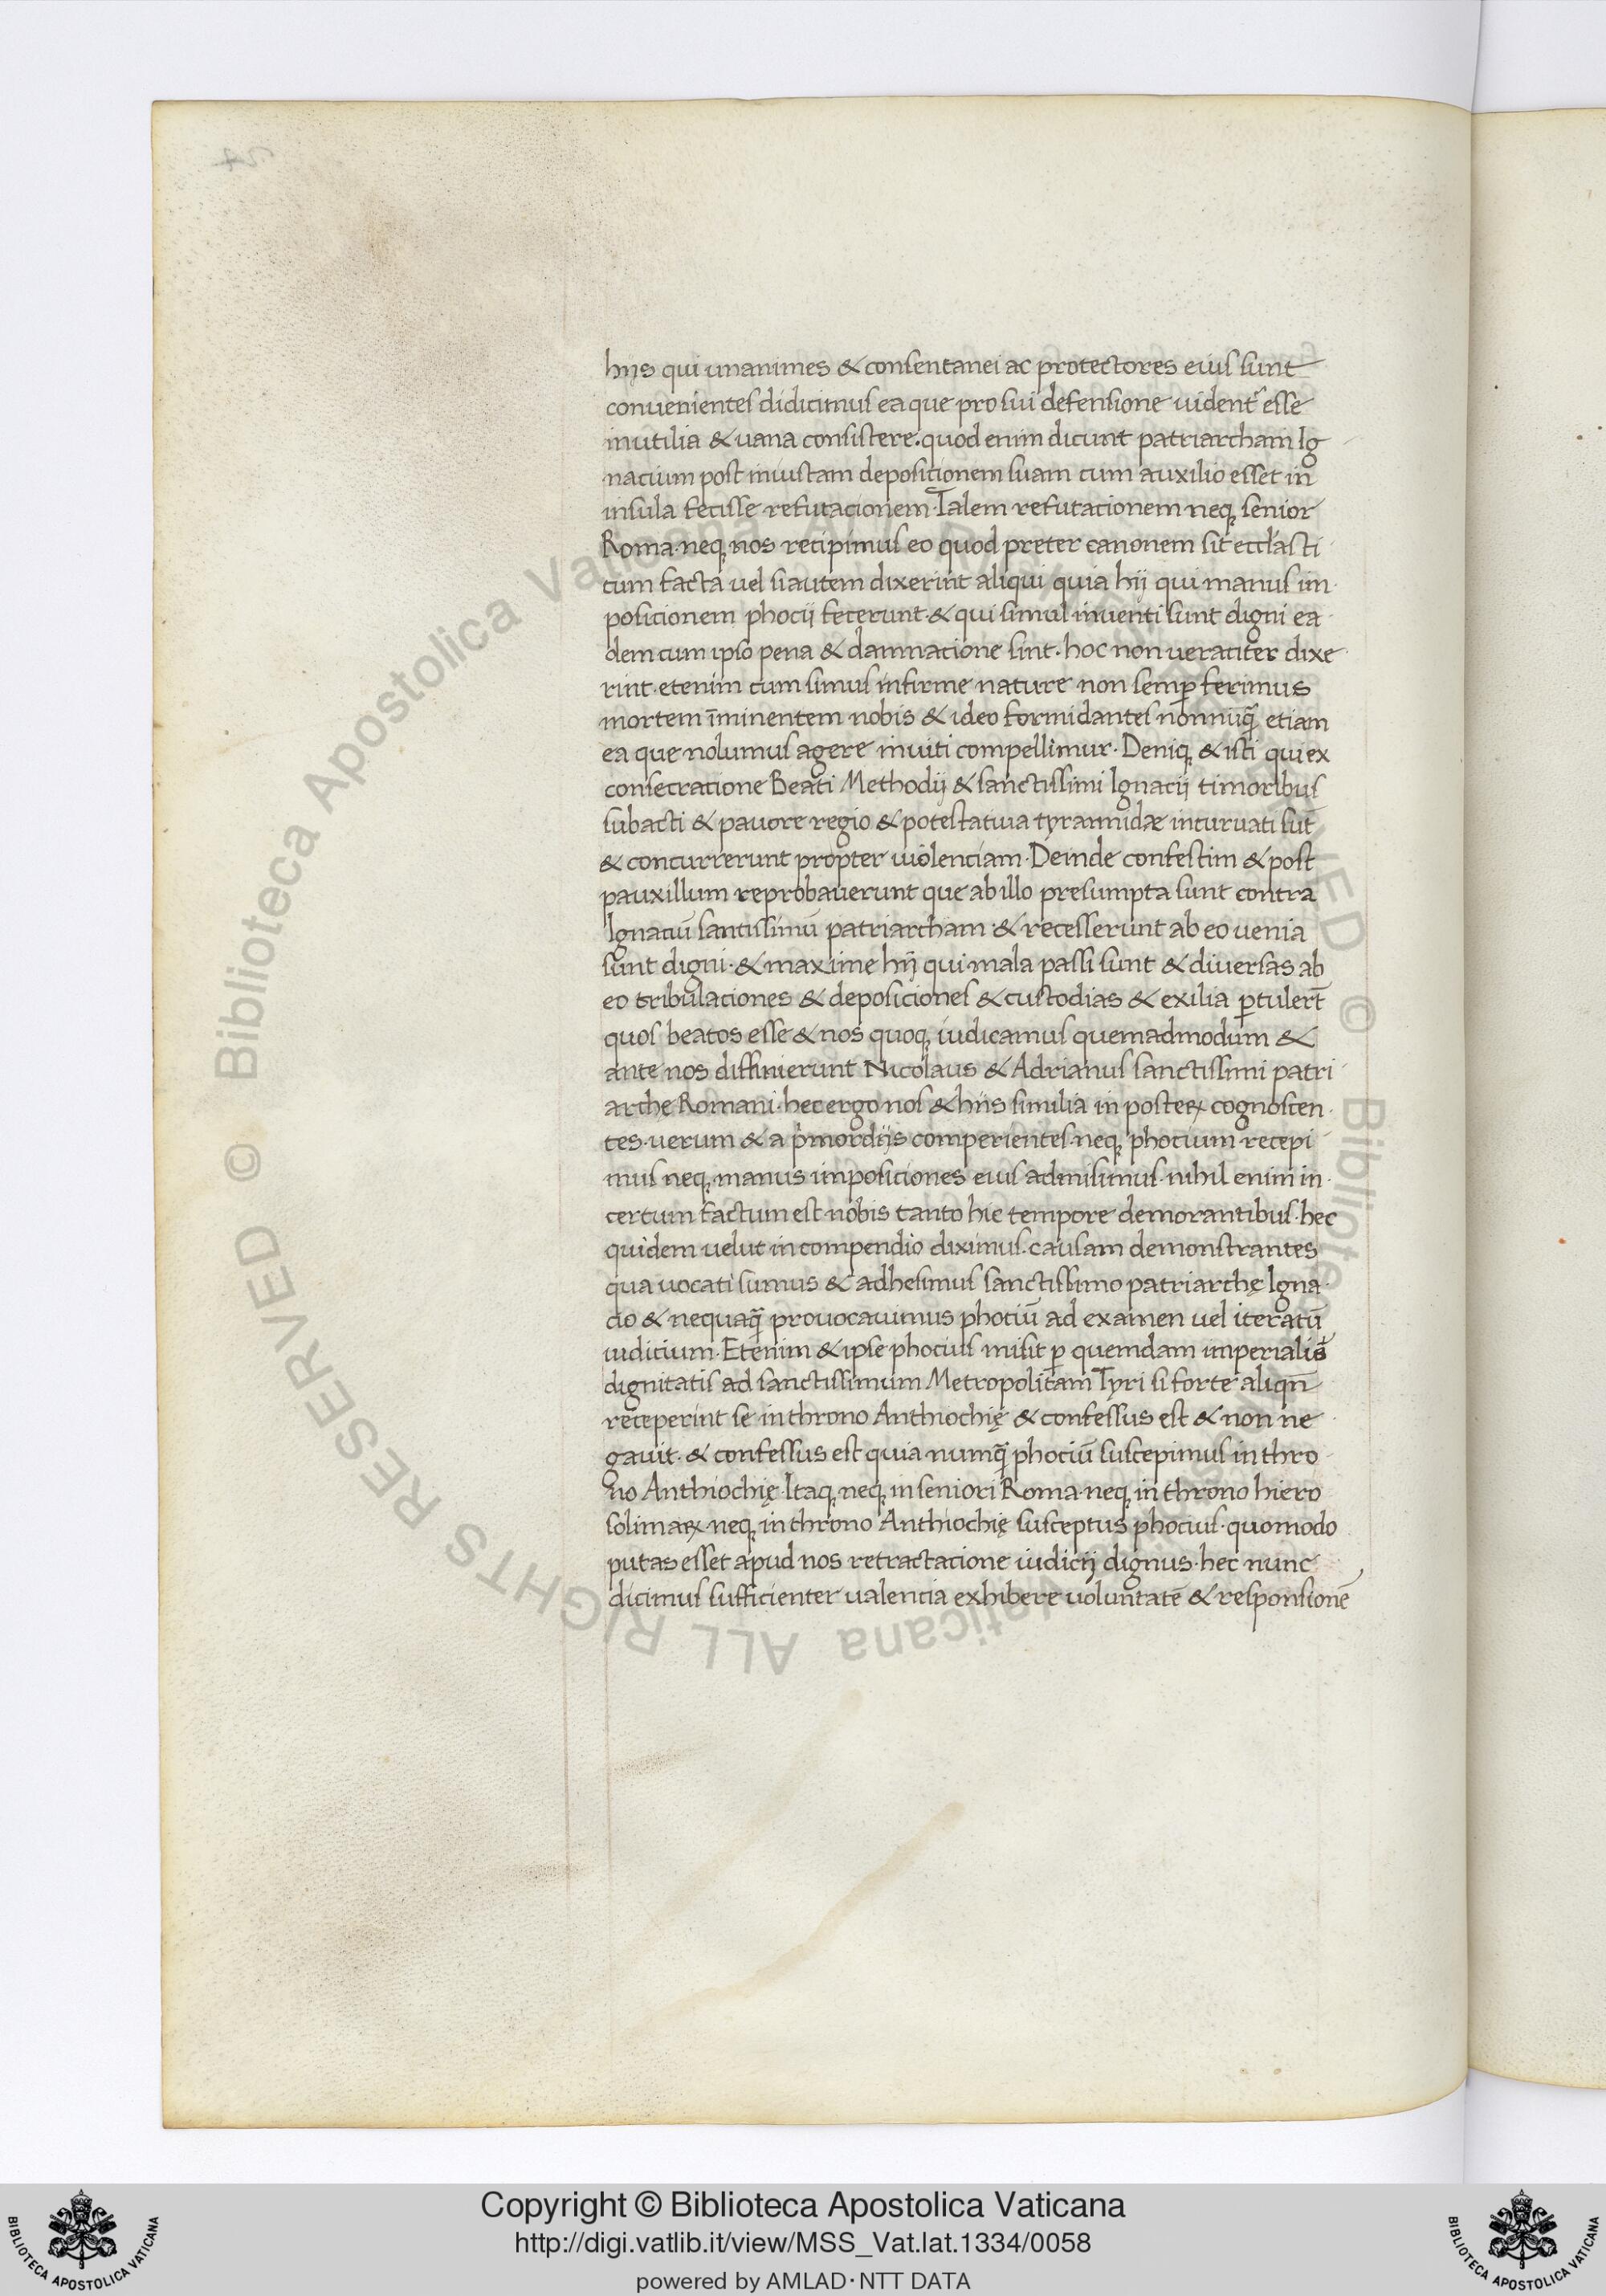 hiis qui unanimes & consentanei ac protectores eius sunt
convenientes didicimus ea que pro sui defensione videntr esse
inutilia & vana consistere. quod enim dicunt patriarcham Ig
nacium post iniustam deposicionem suam cum auxilio esset in
insula fecisse refutacionem. Talem refutacionem neq; senior
Roma neq; nos recipimus eo quod preter canonem sit eccl'asti
cum facta vel si autem dixerint aliqui quia hij qui manus im
posicionem phocij fecerunt. & qui simul inventi sunt digni ea
dem cum ipso pena & damnacione sint. hoc non veraciter dixe
rint. etenim cum simus infirme nature non semp ferimus
mortem īminentem nobis & ideo formidantes nonnūq̄ etiam
ea que nolumus agere inviti compellimur. Deniq; & isti qui ex
consecratione Beati Methodij & sanctissimi Ignacij timoribus
subacti & pavore regio & potestativa tyrannidæ incurvati sūt
& concurrerunt propter violenciam. Deinde confestim & post
pauxillum reprobaverunt que ab illo presumpta sunt contra
Ignaciū sanctissimū patriarcham & recesserunt ab eo venia
sunt digni. & maxime hij qui mala passi sunt & diversas ab
eo tribulaciones & deposiciones & custodias & exilia ptulert̄
quos beatos esse & nos quoq; iudicamus quemadmodum &
ante nos diffinierunt Nicolaus & Adrianus sanctissimi patri
archę Romani. hec ergo nos & hiis similia in posteꝝ cognoscen
tes. verum & a pimordijs comperientes. neq; phocium recepi
mus neq; manus imposiciones eius admisimus. nihil enim in
certum factum est nobis tanto hic tempore demorantibus. hec
quidem velut in compendio diximus. causam demonstrantes
qua vocati sumus & adhesimus sanctissimo patriarchę Igna
cio & nequaq̄ provocavimus phociū ad examen vel iteratū
iudicium. Etenim & ipse phocius misit p quemdam imperialis
dignitatis ad sanctissimum Metropolitam Tyri si forte aliqn̄
receperint se in throno Anthiochię & confessus est & non ne
gavit. & confessus est quia numq̄ phociū suscepimus in thro
no Anthiochię. Itaq; neq; in seniori Roma. neq; in throno hiero
solimaꝝ. neq; in throno Anthiochię susceptus phocius. quomodo
putas esset apud nos retractacione iudicij dignus. hec nunc
dicimus sufficienter valencia exhibere voluntatē & responsionē
© Biblioteca Apostolica Vaticana ALL RIGHTS RESERVED © Biblioteca Apostolica Vaticana ALL RIGHTS RESERVED
Copyright © Biblioteca Apostolica Vaticana
http://digi.vatlib.it/view/MSS_Vat.lat.1334/0058
powered by AMLAD·NTT DATA
BIBLIOTECA APOSTOLICA VATICANA
BIBLIOTECA APOSTOLICA VATICANA